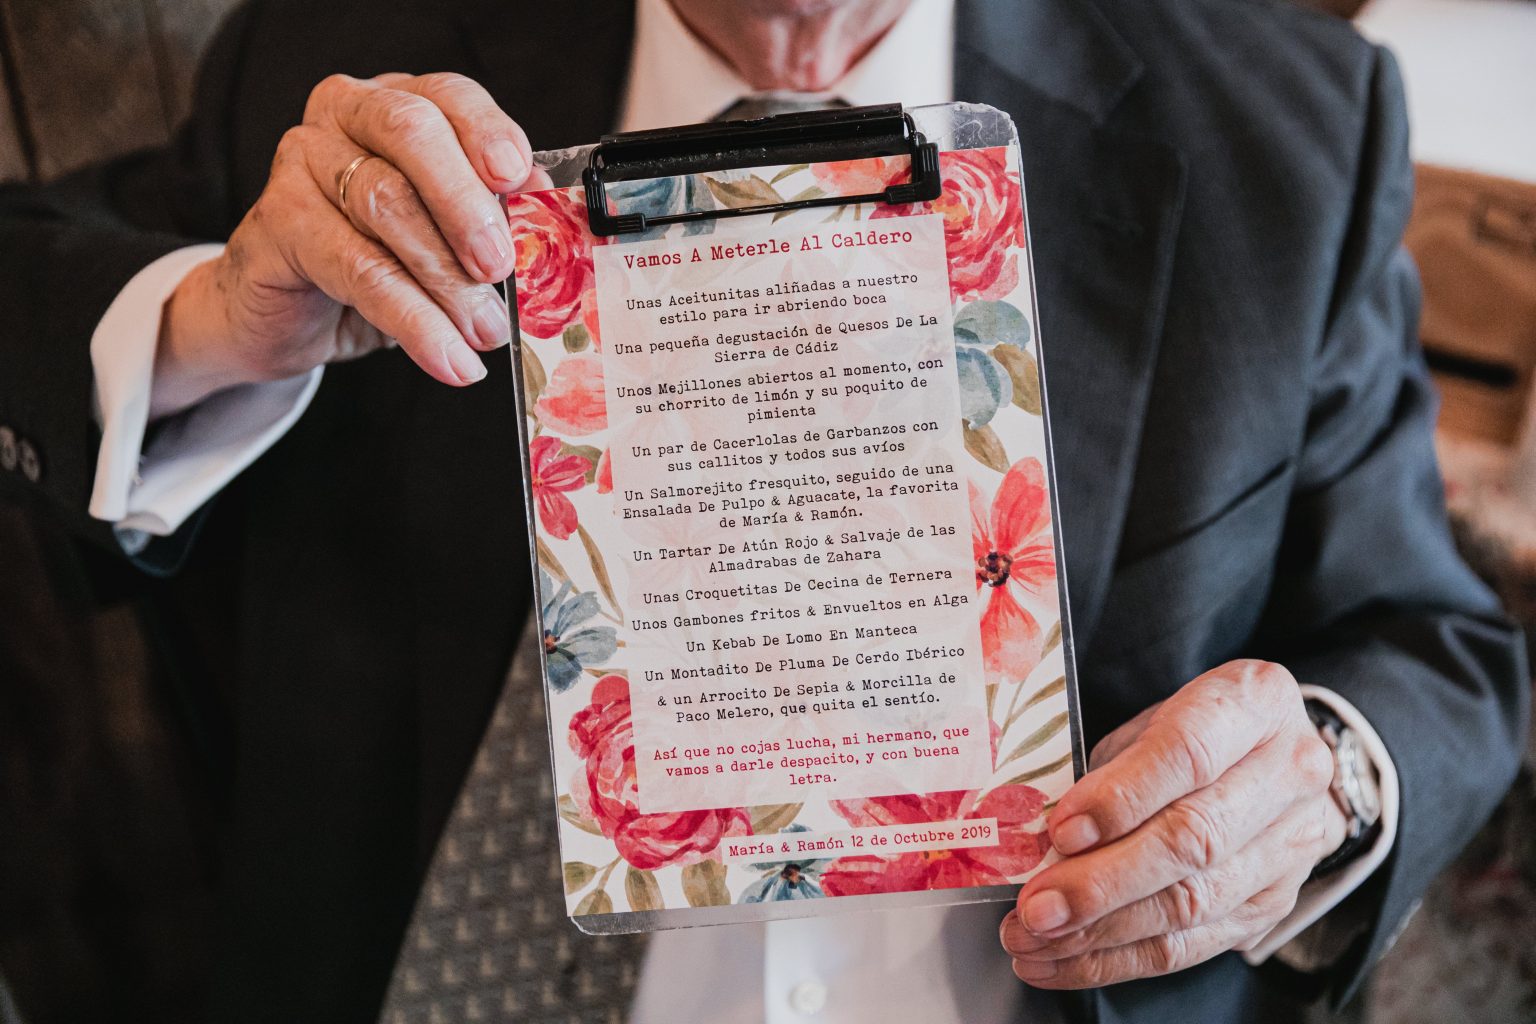 Vamos A Meterle Al Caldero
Unas Aceitunitas aliñadas a nuestro
estilo para ir abriendo boca
Una pequeña degustación de Quesos De La
Sierra de Cádiz
Unos Mejillones abiertos al momento, con
su chorrito de limón y su poquito de
pimienta
Un par de Cacerlolas de Garbanzos con
sus callitos y todos sus avíos
Un Salmorejito fresquito, seguido de una
Ensalada De Pulpo & Aguacate, la favorita
de María & Ramón.
Un Tartar De Atún Rojo & Salvaje de las
Almadrabas de Zahara
Unas Croquetitas De Cecina de Ternera
Unos Gambones fritos & Envueltos en Alga
Un Kebab De Lomo En Manteca
Un Montadito De Pluma De Cerdo Ibérico
& un Arrocito De Sepia & Morcilla de
Paco Melero, que quita el sentío.
Así que no cojas lucha, mi hermano, que
vamos a darle despacito, y con buena
letra.
María & Ramón 12 de Octubre 2019